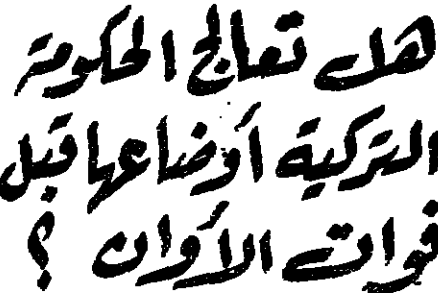 هل تعالج الحكومة
التركية أوضاعها قبل
فوات الأوان ؟